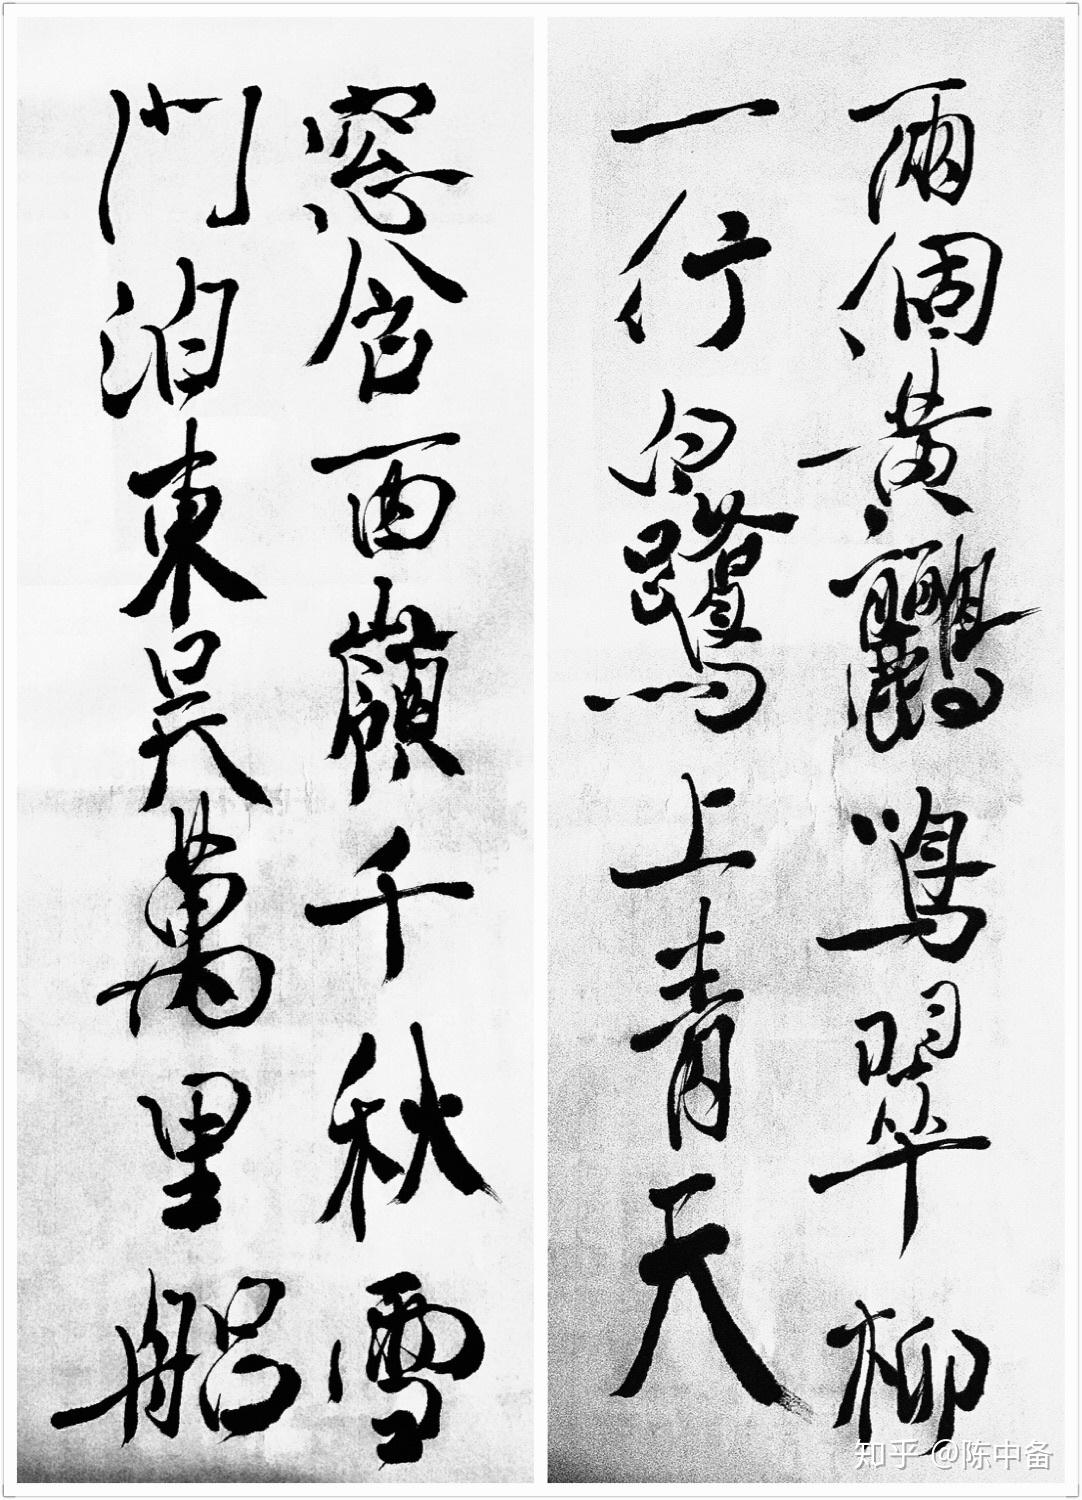 兩個黄鸝鳴翠柳
一行白鷺上青天
窓含西嶺千秋雪
門泊東吳萬里船
知乎 @陈中备